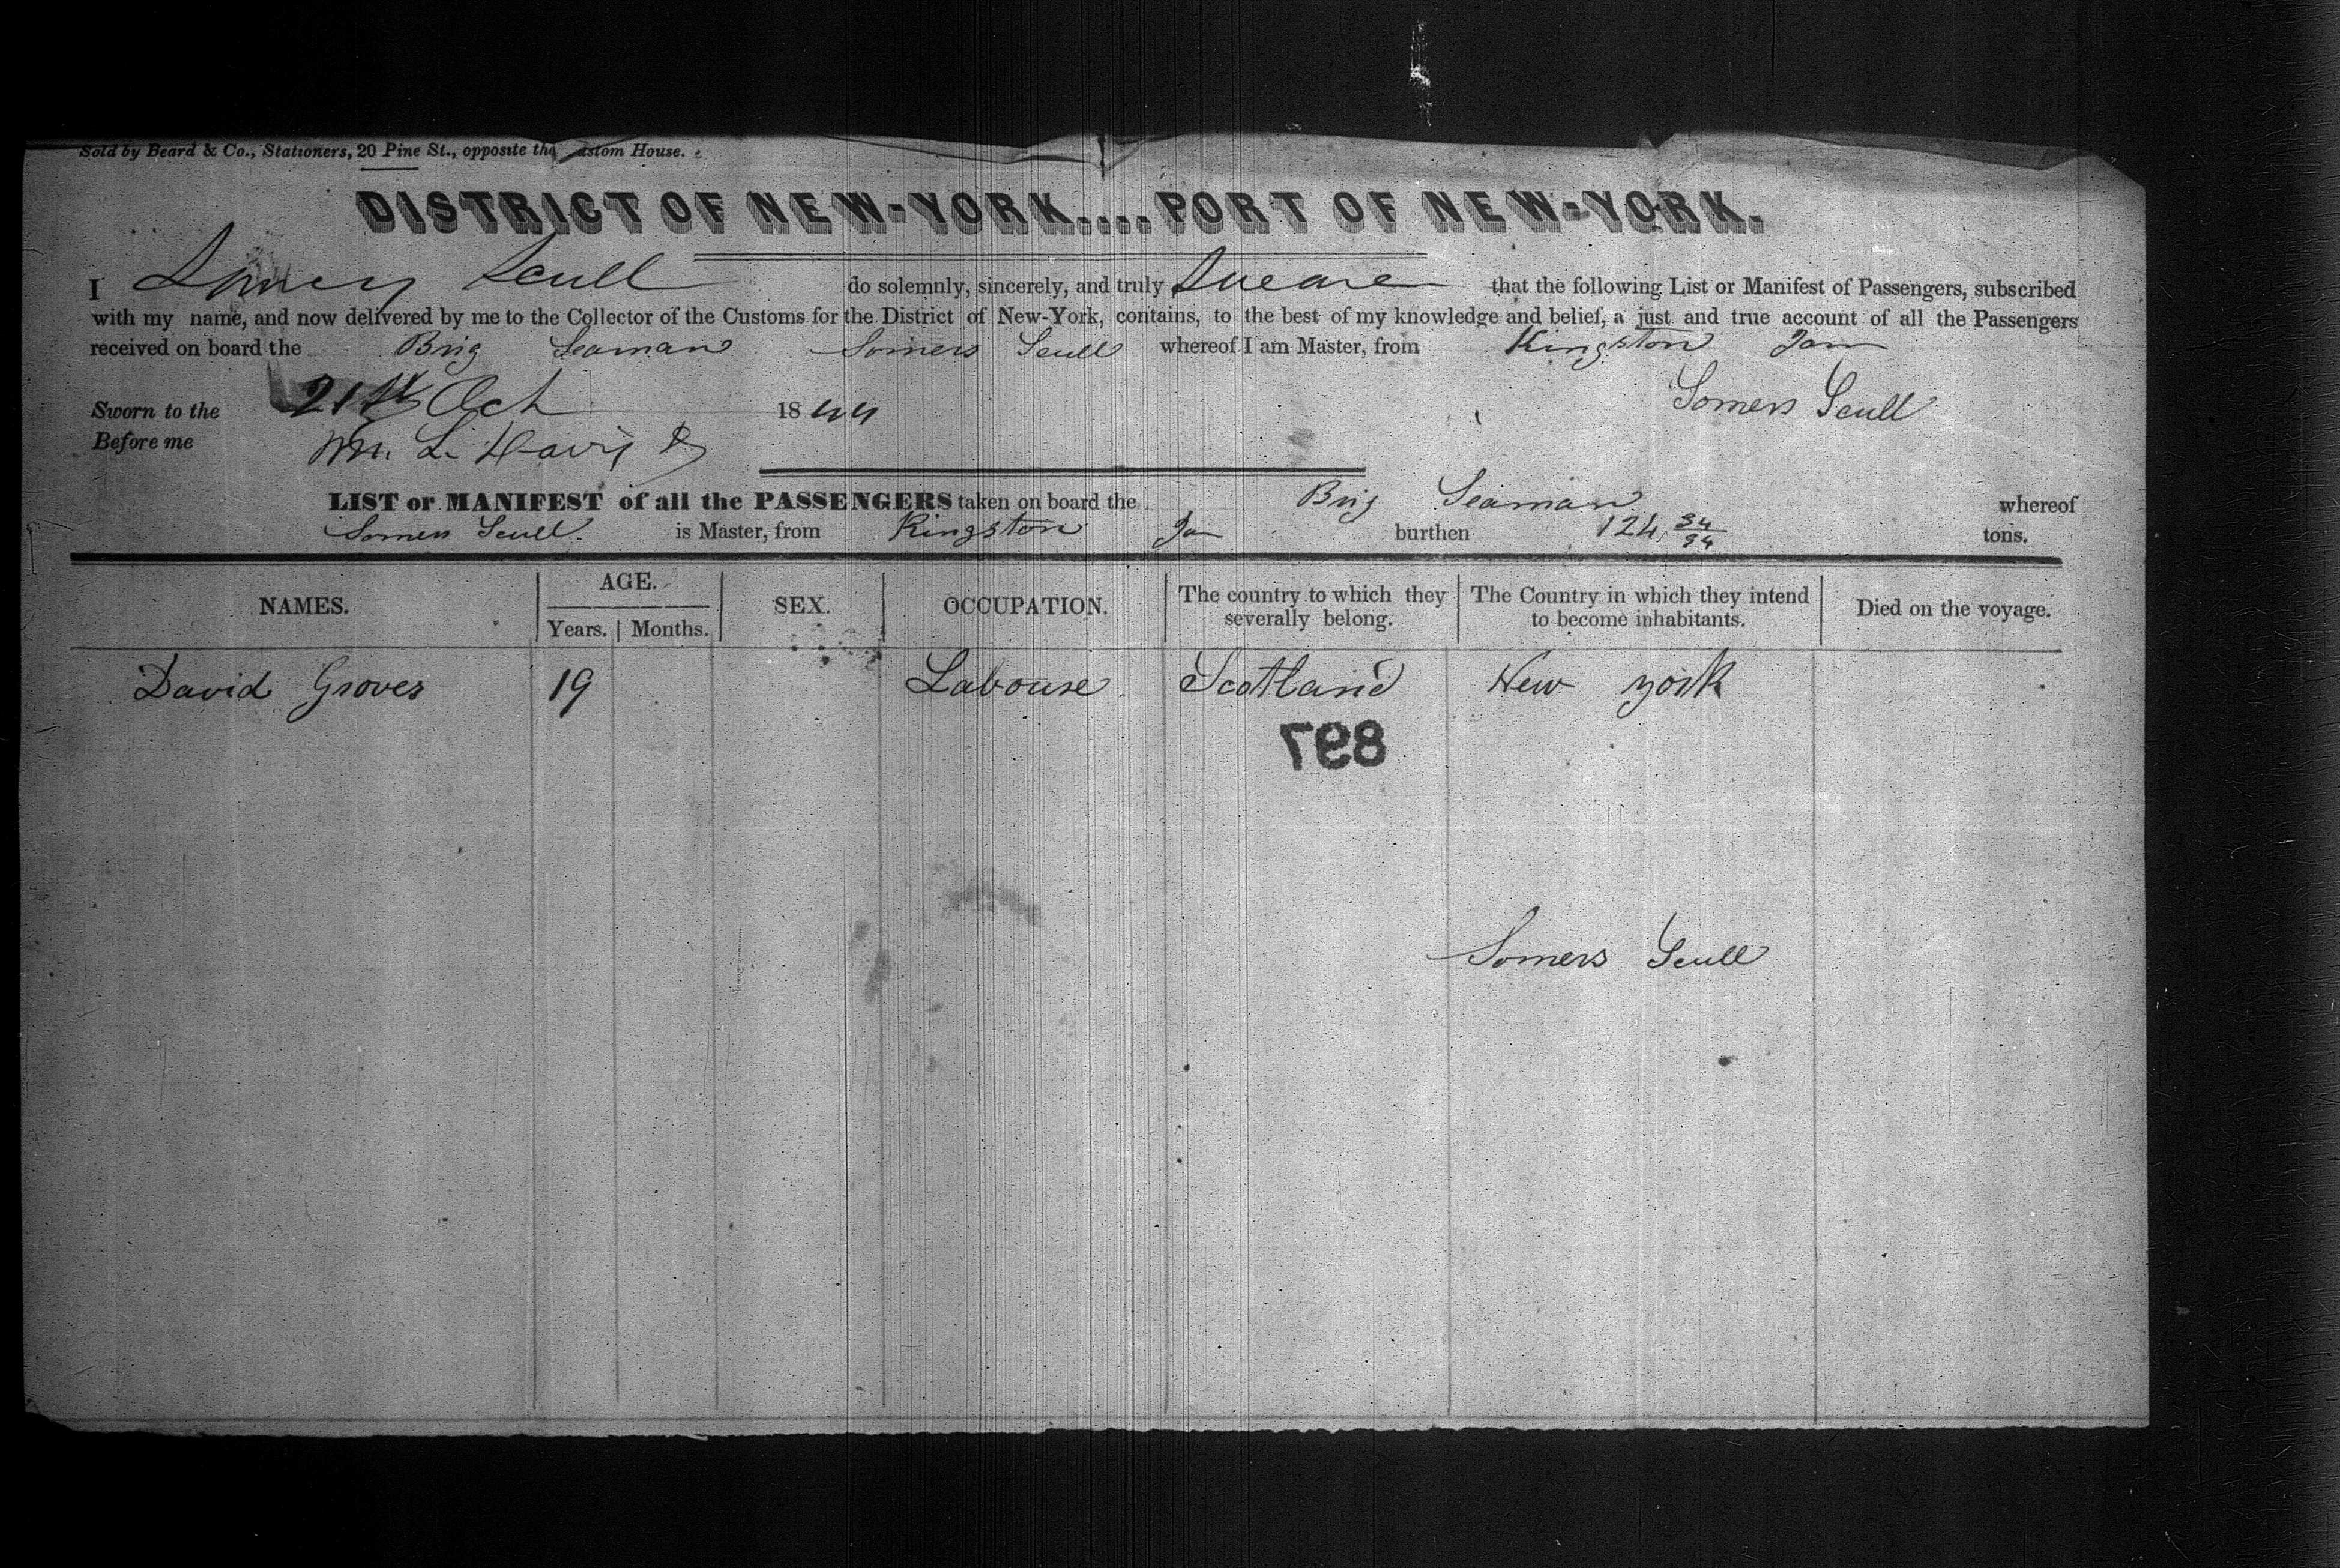 Sold by Beard & Co., Stationers, 20 Pine St., opposite the ustom House.
DISTRICT OF NEW-YORK....PORT OF NEW-YORK.
I Somers Scull do solemnly, sincerely, and truly Sweare that the following List or Manifest of Passengers, subscribed
with my name, and now delivered by me to the Collector of the Customs for the District of New-York, contains, to the best of my knowledge and belief, a just and true account of all the Passengers
received on board the Brig Seaman Somers Scull whereof I am Master, from Kingston Jam
Sworn to the 21st Oct 1844 Somers Scull
Before me Wm. L. Davis
LIST or MANIFEST of all the PASSENGERS taken on board the Brig Seaman whereof
Somers Scull is Master, from Kingston Ja burthen 124 34/94 tons.
NAMES. AGE. SEX. OCCUPATION. The country to which they severally belong. The Country in which they intend to become inhabitants. Died on the voyage.
Years. Months.
David Groves 19 Labouse Scotland New york
897
Somers Scull